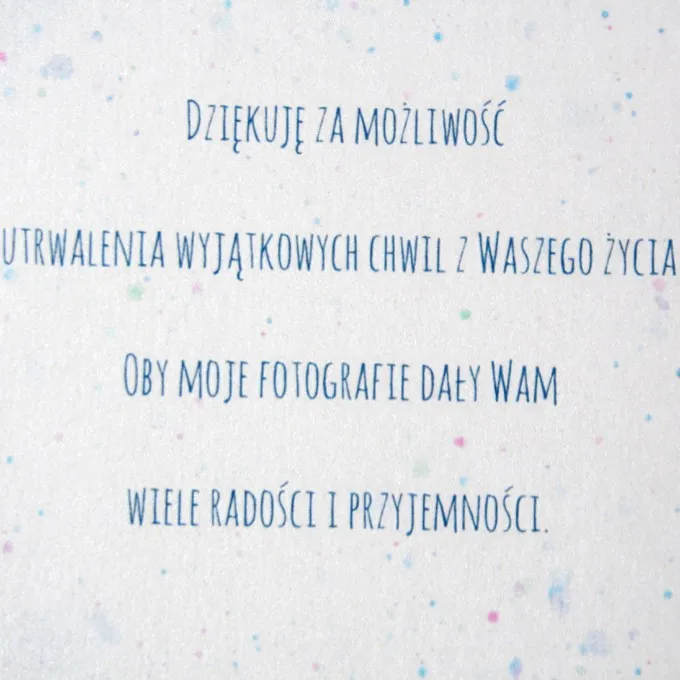 Dziękuję za możliwość
utrwalenia wyjątkowych chwil z Waszego życia
Oby moje fotografie dały Wam
wiele radości i przyjemności.